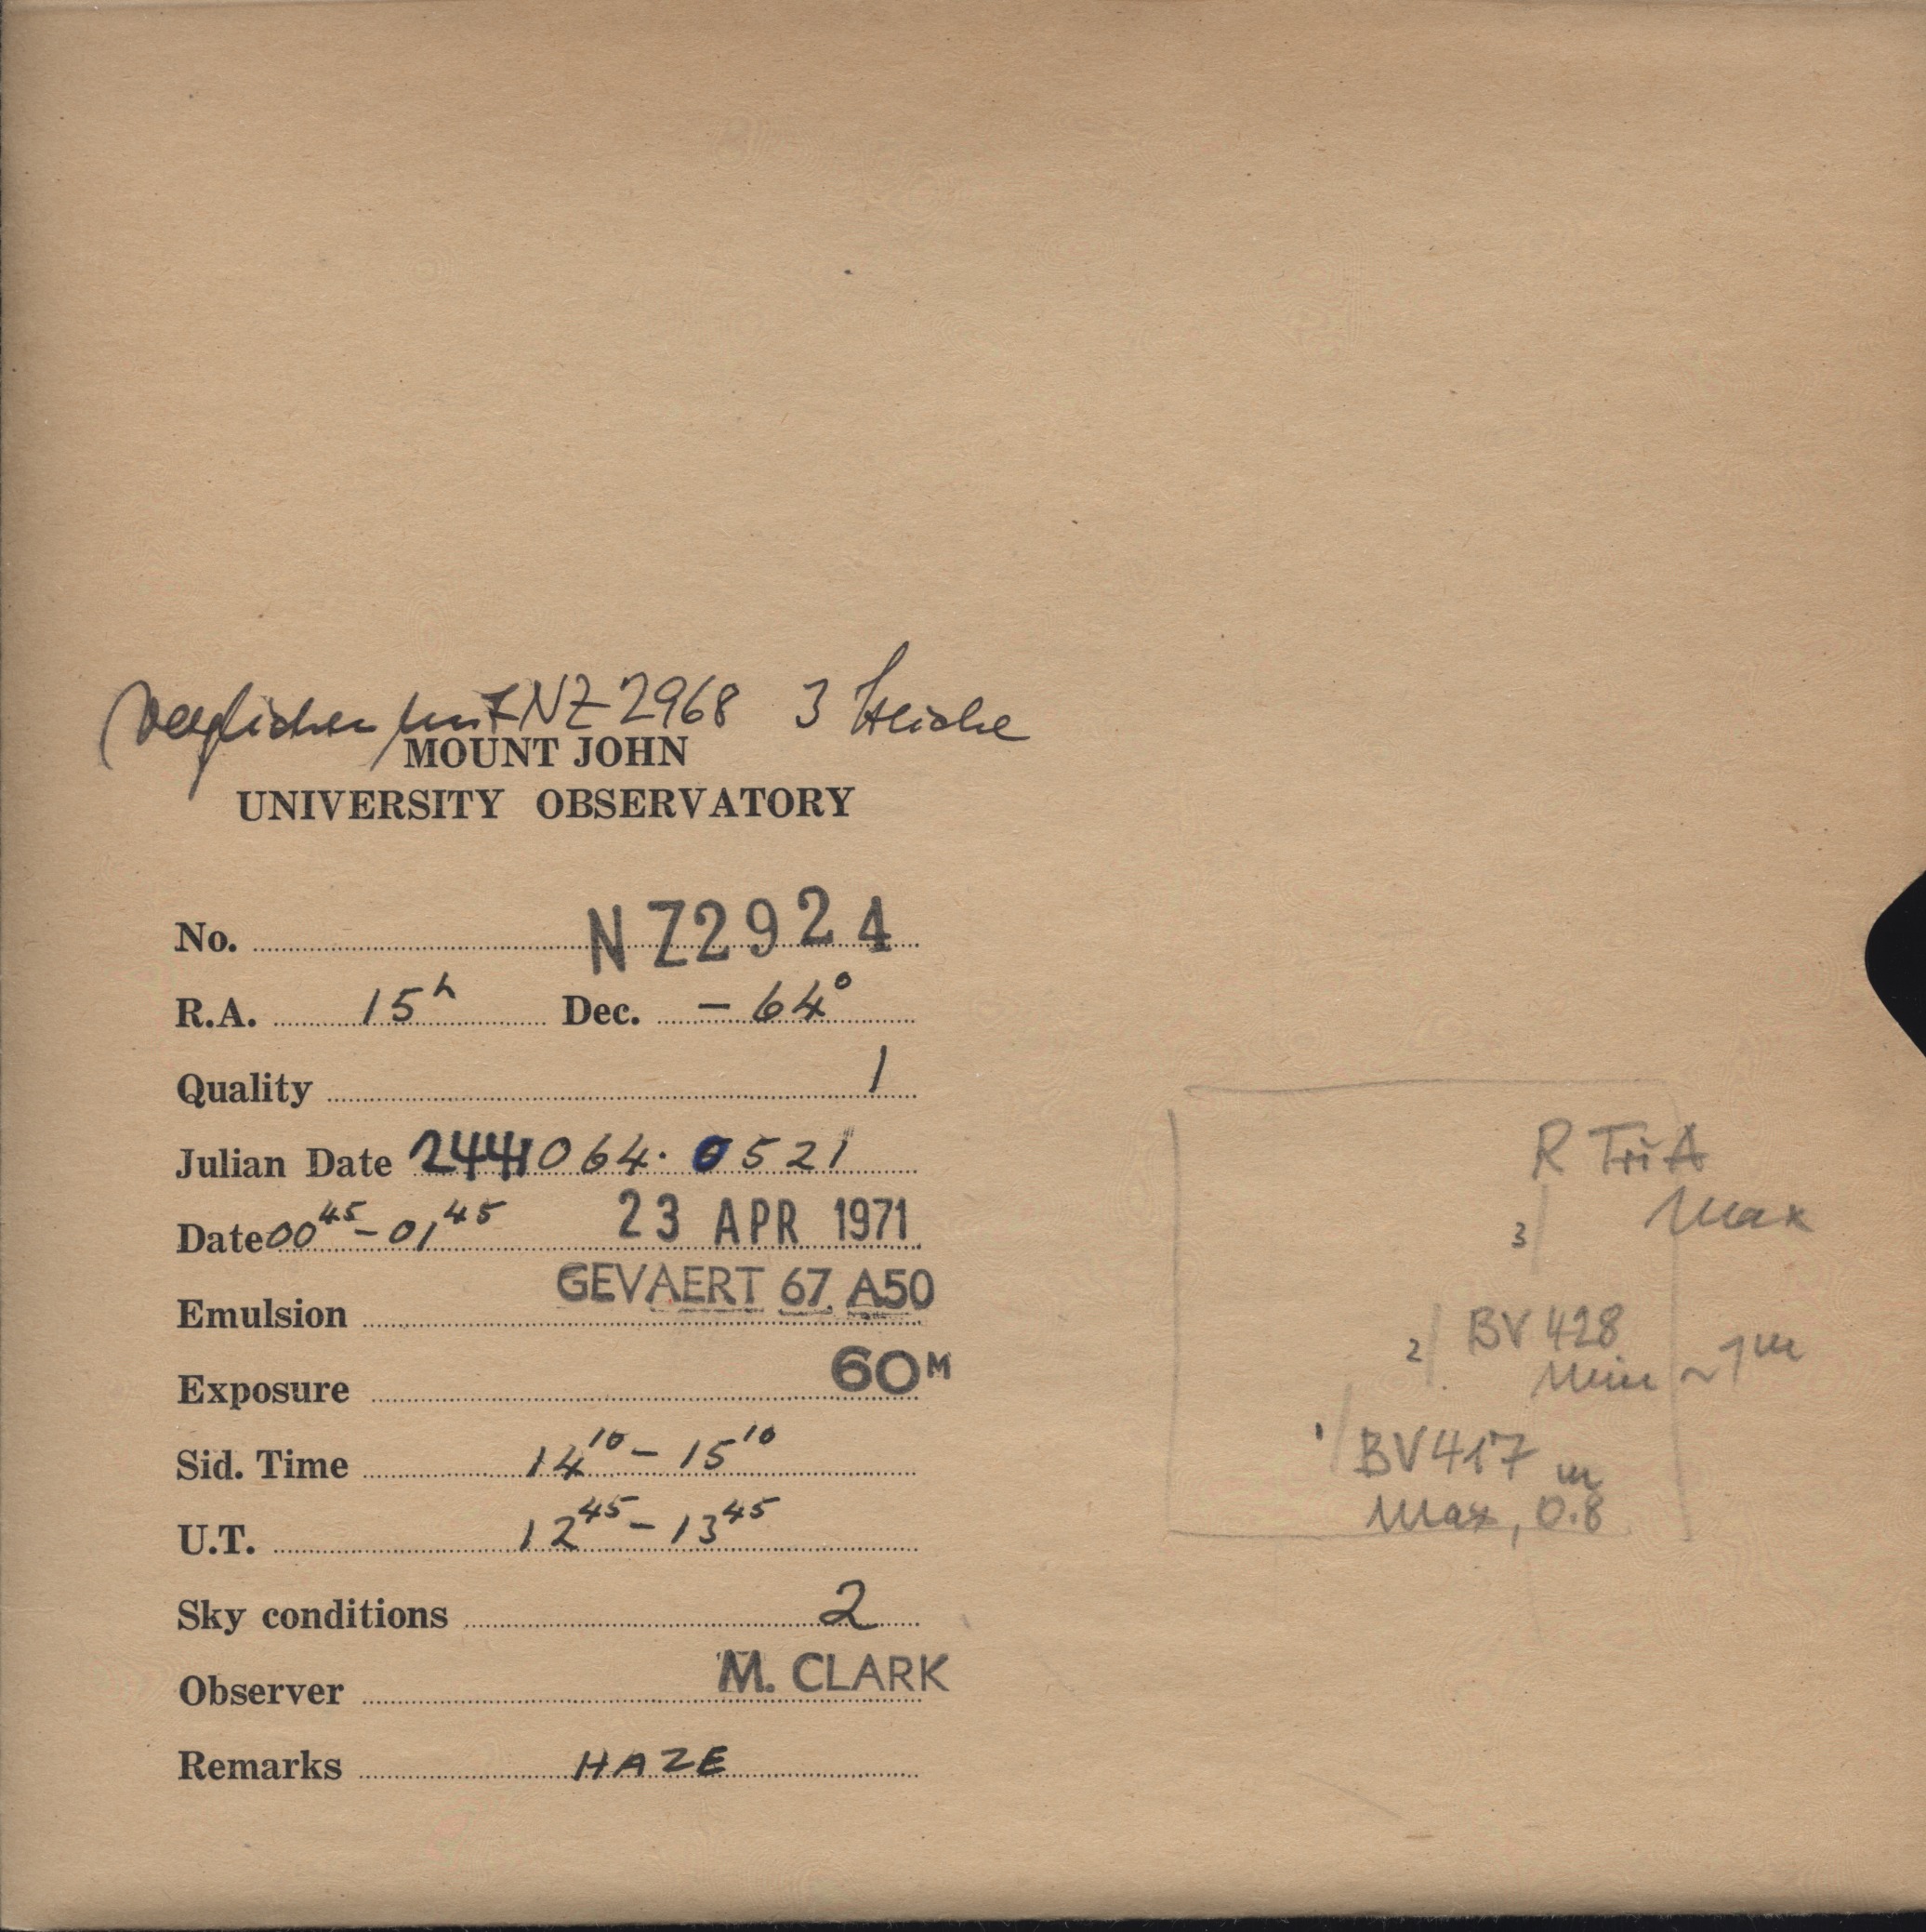 verglichen mit NZ 2968 3 Striche
MOUNT JOHN
UNIVERSITY OBSERVATORY
No. NZ2924
R.A. 15h Dec. -64°
Quality 1
Julian Date 2441064.0521
Date 00 45 - 01 45 23 APR 1971
Emulsion GEVAERT 67 A50
Exposure 60M
Sid. Time 14 10 - 15 10
U.T. 12 45 - 13 45
Sky conditions 2
Observer M. CLARK
Remarks HAZE
R TrA
3 Max
2 BV 428
Min ~1m
1 BV 417
Max, 0.8m